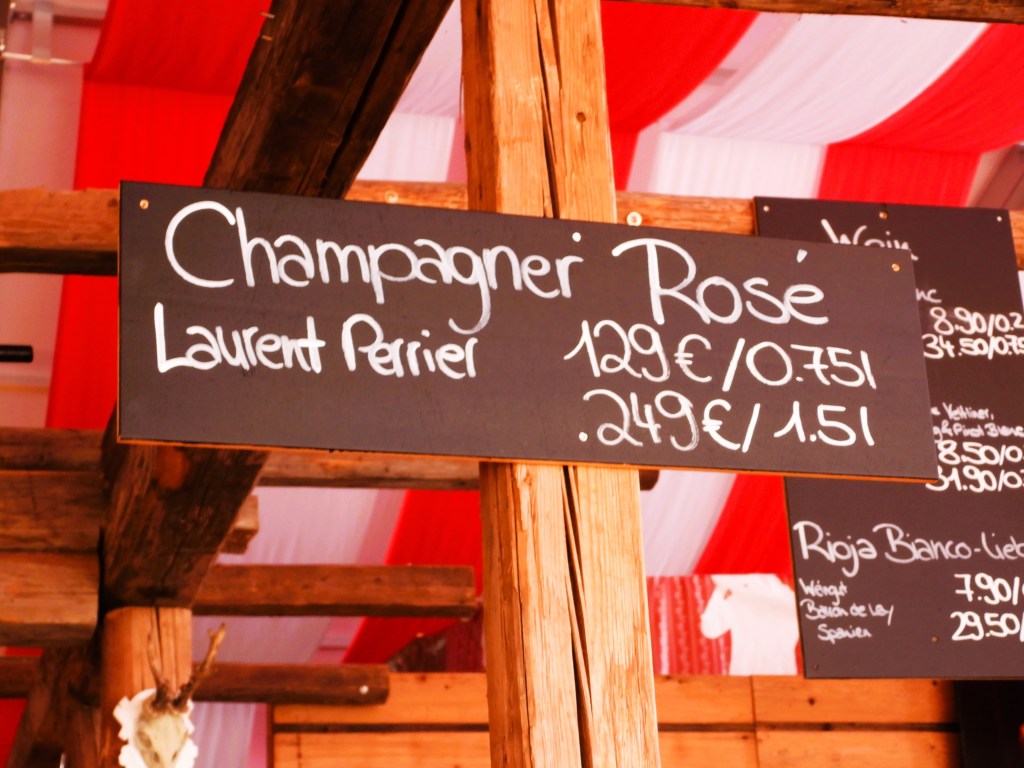 Champagner Rosé
Laurent Perrier 129€/0.75l
249€/1.5l
Wein
8.90/0.2
34.50/0.75
Veltliner,
& Pinot Blanc
8.50/0.
31.90/0.7
Rioja Bianco-Lieb
Weingut
Baron de Ley
Spanien
7.90/
29.50/